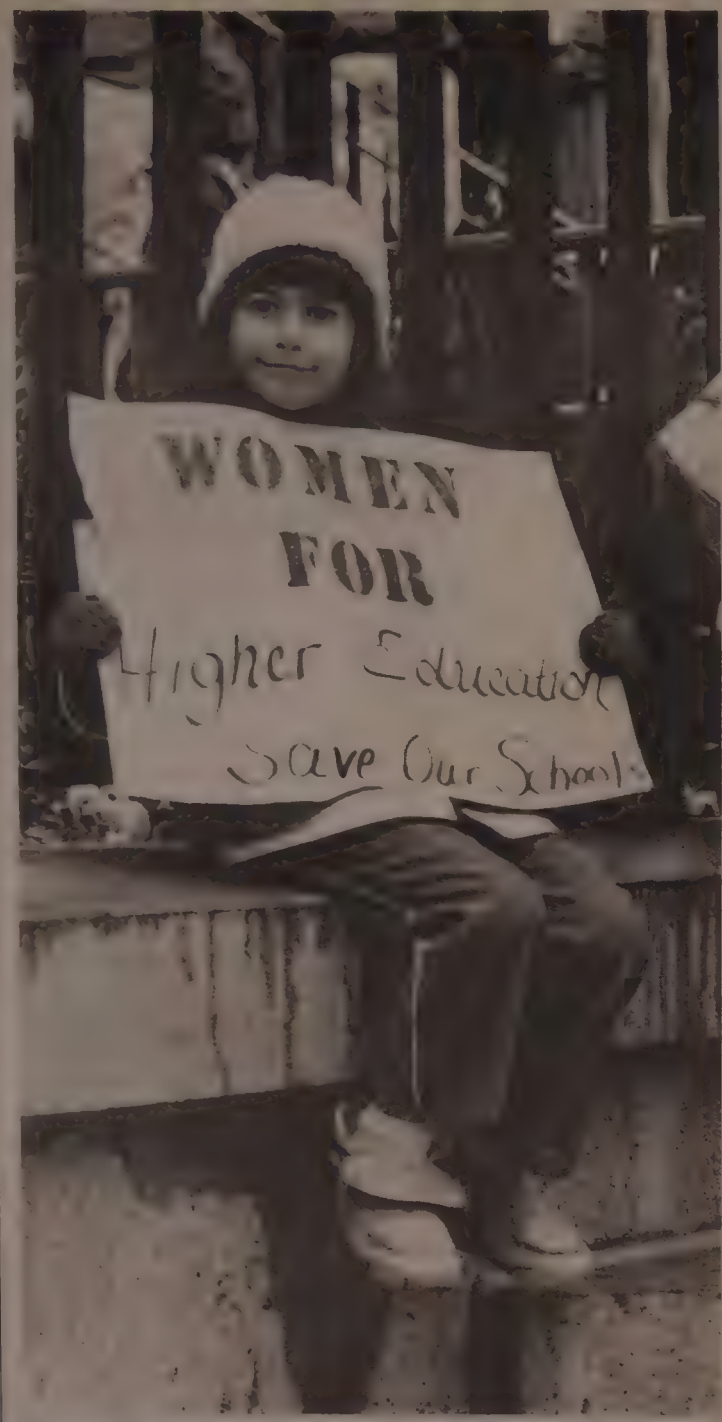 WOMEN
FOR
Higher Education
Save Our School